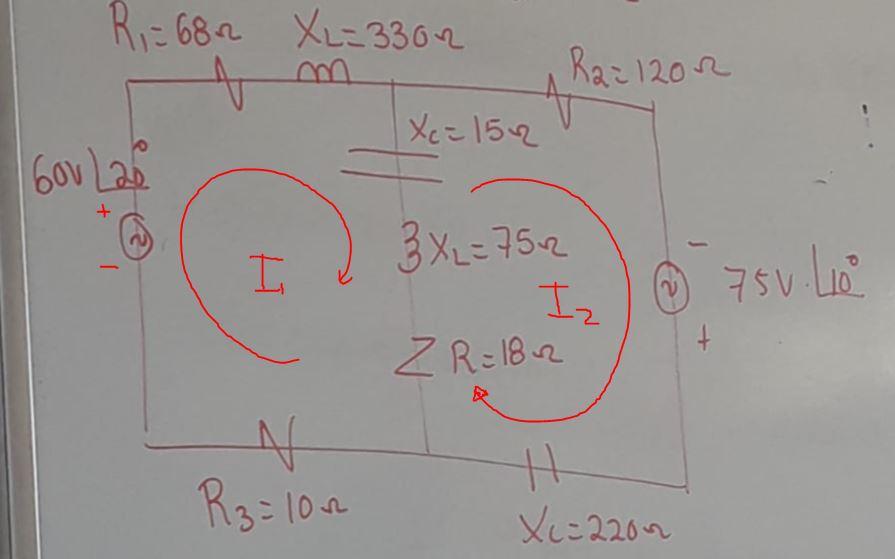 R₁=68Ω
X_L=330Ω
R₂=120Ω
X_C=15Ω
60V∠20°
+
-
I₁
X_L=75Ω
I₂
-
75V.∠10°
+
R=18Ω
R₃=10Ω
X_C=220Ω